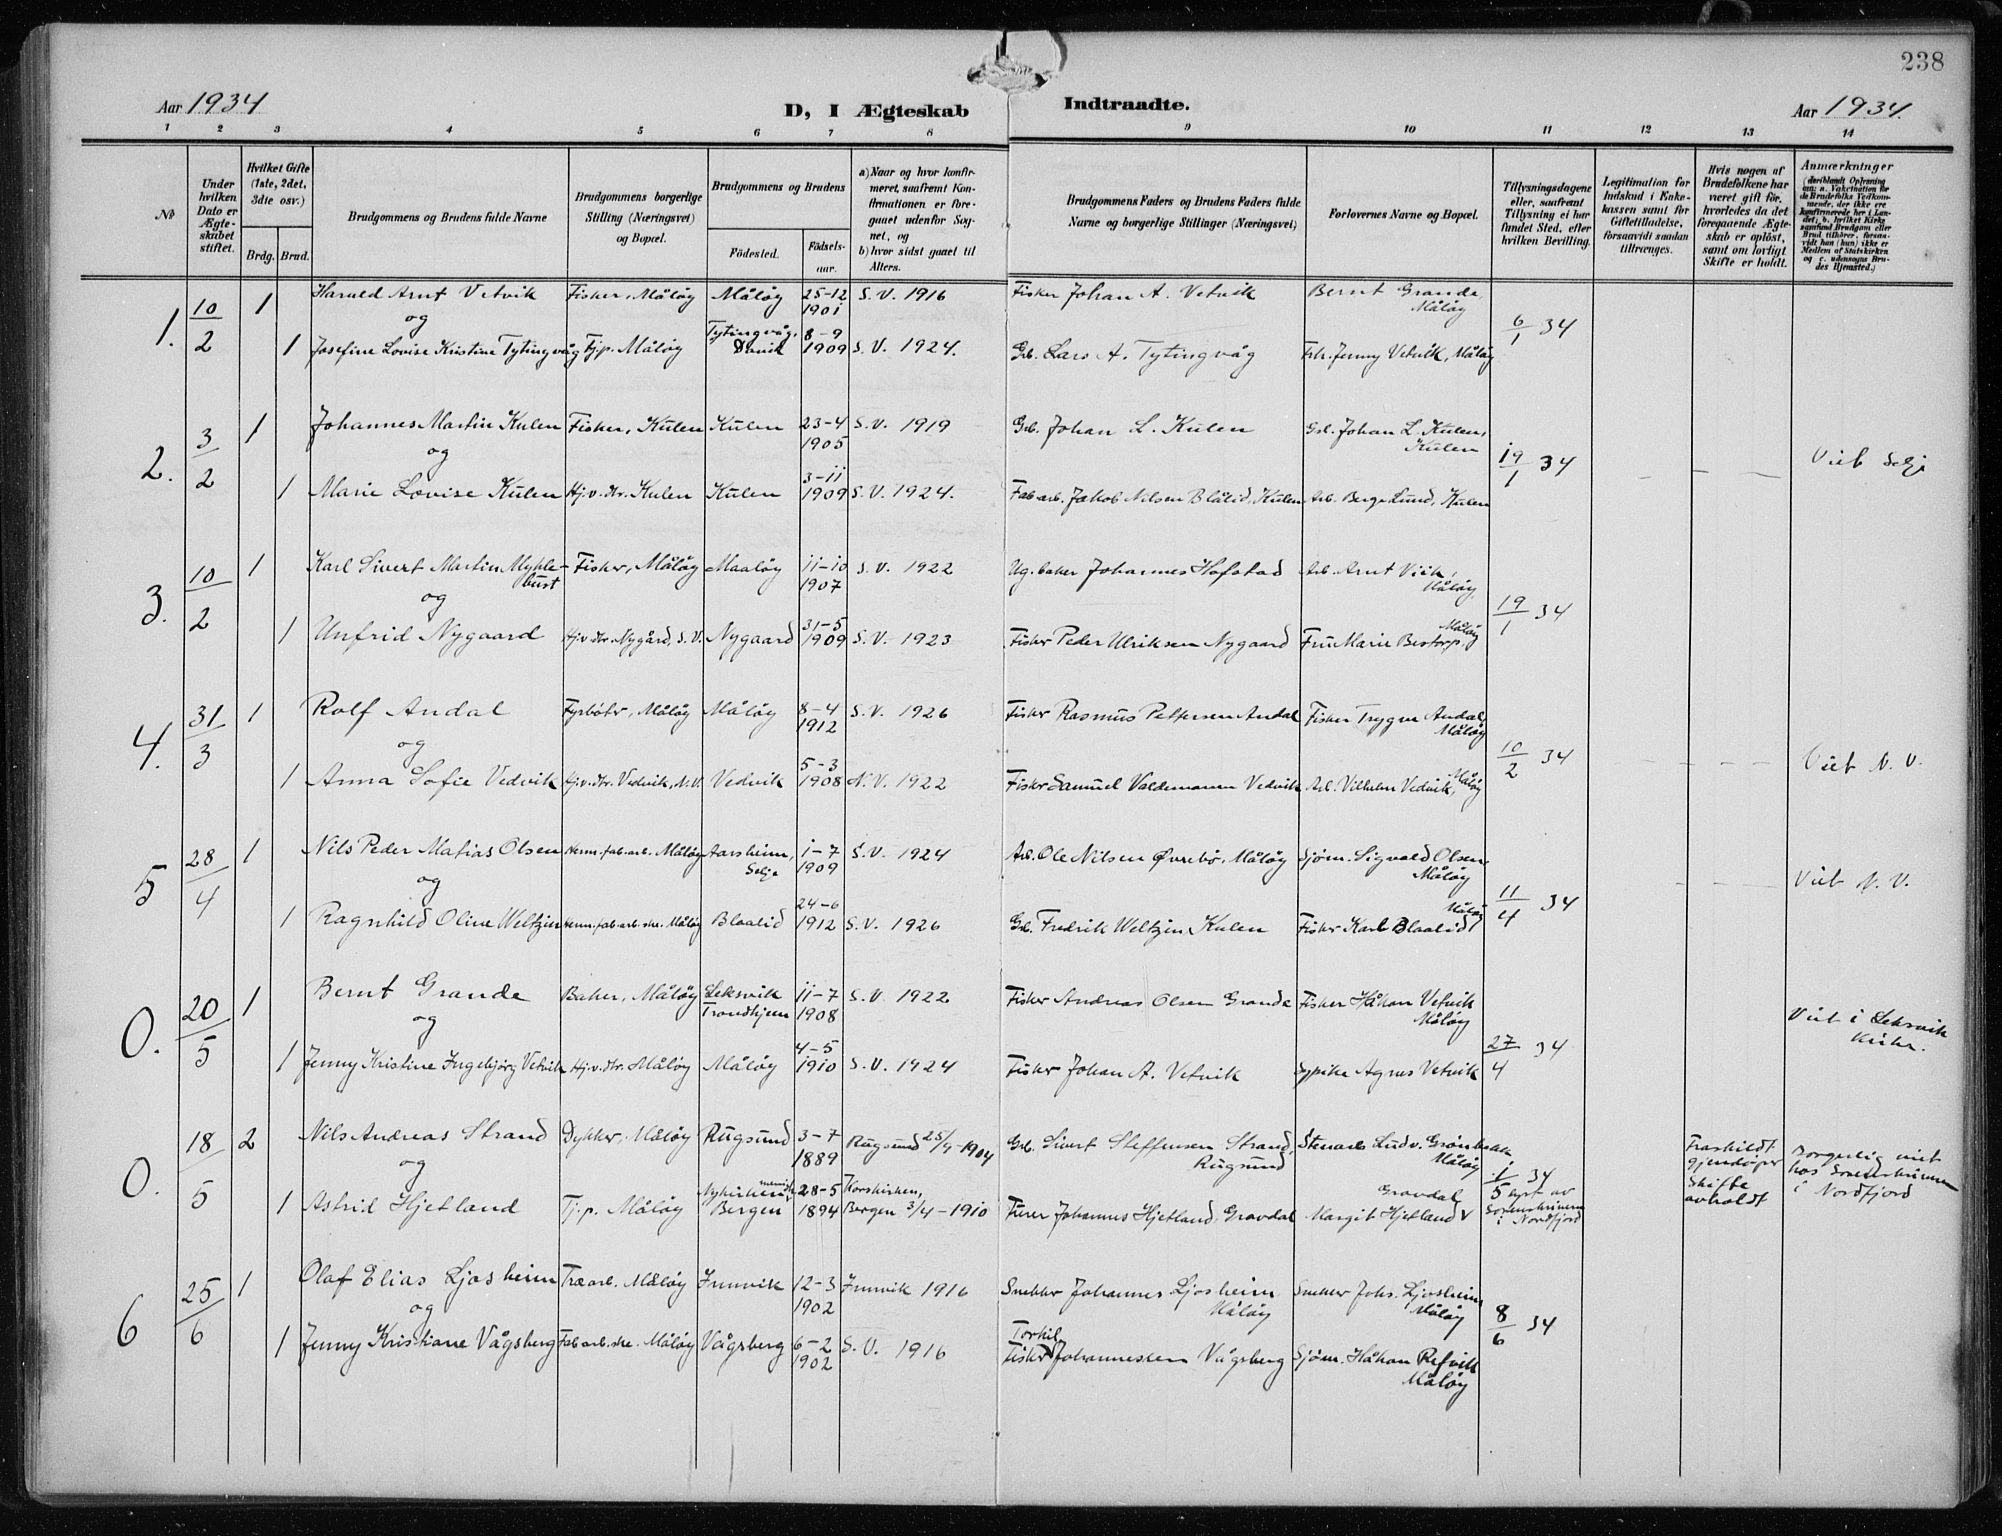 238
Aar 1934
D, I Ægteskab Indtraadte.
Aar 1934.
1 2 3 4 5 6 7 8 9 10 11 12 13 14
No
Under hvilken Dato er Ægteskabet stiftet.
Hvilket Gifte (1ste, 2det, 3dte osv.)
Brdg. Brud.
Brudgommens og Brudens fulde Navne
Brudgommens borgerlige Stilling (Næringsvei) og Bopæl.
Brudgommens og Brudens
Fødested.
Fødselsaar.
a) Naar og hvor konfirmeret, saafremt Konfirmationen er foregaaet udenfor Sognet, og
b) hvor sidst gaaet til Alters.
Brudgommens Faders og Brudens Faders fulde Navne og borgerlige Stillinger (Næringsvei)
Forlovernes Navne og Bopæl.
Tillysningsdagene eller, saafremt Tillysning ei har fundet Sted, efter hvilken Bevilling.
Legitimation for Indskud i Enkekassen samt for Giftetilladelse, forsaavidt saadan tiltrænges.
Hvis nogen af Brudefolkene har været gift før, hvorledes da det foregaaende Ægteskab er opløst, samt om lovligt Skifte er holdt.
Anmærkninger
(deriblandt Oplysning om: a. Vakcination for de Brudefolks Vedkommende, der ikke ere konfirmerede her i Landet; b. hvilket Kirkesamfund Brudgom eller Brud tilhører, forsaavidt han (hun) ikke er Medlem af Statskirken og c. udensogns Brudes Hjemsted.)
1. 10/2 1 Harald Arnt Vetvik Fisker, Måløy Måløy 25-12 1901 S.V. 1916 Fisker Johan A. Vetvik Bernt Grande, Måløy
og 6/1 34
1 Josefine Lovise Kristine Tytingvåg Tj.p. Måløy Tytingvåg, Davik 8-9 1909 S.V. 1924. Grb. Lars A. Tytingvåg Frk. Jenny Vetvik, Måløy
2. 3/2 1 Johannes Martin Kulen Fisker, Kulen Kulen 23-4 1905 S.V. 1919 Grb. Johan L. Kulen Grb. Johan L. Kulen, Kulen
og 19/1 34 - - - Viet Selje
1 Marie Lovise Kulen Hj.v.dtr. Kulen Kulen 3-11 1909 S.V. 1924. Fab.arb. Jakob Nilsen Blålid, Kulen Arb. Berge Lund, Kulen
3. 10/2 1 Karl Sivert Martin Myklebust Fisker, Måløy Maaløy 11-10 1907 S.V. 1922 Ug. baker Johannes Hofstad Arb. Arnt Viik, Måløy
og 19/1 34
1 Unfrid Nygaard Hj.v.dtr. Nygård, S.V. Nygaard 31-5 1909 S.V. 1923 Fisker Peder Ulriksen Nygaard Fru Marie Bestorp. Måløy
4. 31/3 1 Rolf Andal Fyrbøter, Måløy Måløy 8-4 1912 S.V. 1926 Fisker Rasmus Pettersen Andal Fisker Trygve Andal, Måløy
og 10/2 34 - - - Viet N.V.
1 Anna Sofie Vedvik Hj.v.dtr. Vedvik, N.V. Vedvik 5-3 1908 N.V. 1922 Fisker Samuel Valdemann Vedvik Arb. Vilhelm Vedvik, Måløy
5 28/4 1 Nils Peder Matias Olsen Herm.fab.arb. Måløy Aarsheim, Selje 1-7 1909 S.V. 1924 Arb. Ole Nilsen Øvrebø, Måløy Sjøm. Sigvald Olsen Måløy
og 11/4 34 - - - Viet N.V.
1 Ragnhild Oline Weltzin Herm.fab.arb.ske. Måløy Blaalid 24-6 1912 S.V. 1926 Grb. Fredrik Weltzin, Kulen Fisker Karl Blaalid, Måløy
0. 20/5 1 Bernt Grande Baker, Måløy Leksvik Trondhjem 11-7 1908 S.V. 1922 Fisker Andreas Olsen Grande Fisker Håkon Vetvik Måløy
og 27/4 34 Viet i Leksvik Kirke.
1 Jenny Kristine Ingebjørg Vetvik Hj.v.dtr. Måløy Måløy 4-5 1910 S.V. 1924 Fisker Johan A. Vetvik Sypike Agnes Vetvik
0. 18/5 2 Nils Andreas Strand Dykker, Måløy Rugsund 3-7 1889 Rugsund 25/9-1904 Grb. Sivert Steffensen Strand, Rugsund Stenarb. Ludv. Grønbakk, Måløy
og 1/5 34 lyst av Sorenskriveren i Nordfjord Fraskildt gjendøper Skifte avholdt Borgerlig viet hos Sorenskriveren i Nordfjord
1 Astrid Hjetland Tj.p. Måløy Nykirkens menigh. Bergen 28-5 1894 Korskirken, Bergen 3/4-1910 Furer Johannes Hjetland, Gravdal Margit Hjetland, Gravdal
6 25/6 1 Olaf Elias Ljosheim Træarb. Måløy Innvik 12-3 1902 Innvik 1916 Snekker Johannes Ljosheim Måløy Snekker Johs. Ljosheim, Måløy
og 8/6 34
1 Jenny Kristiane Vågsberg Fab.arb.ske. Måløy Vågsberg 6-2 1902 S.V. 1916 Fisker Torkil Johannessen Vågsberg Sjøm. Håkon Refvik Måløy